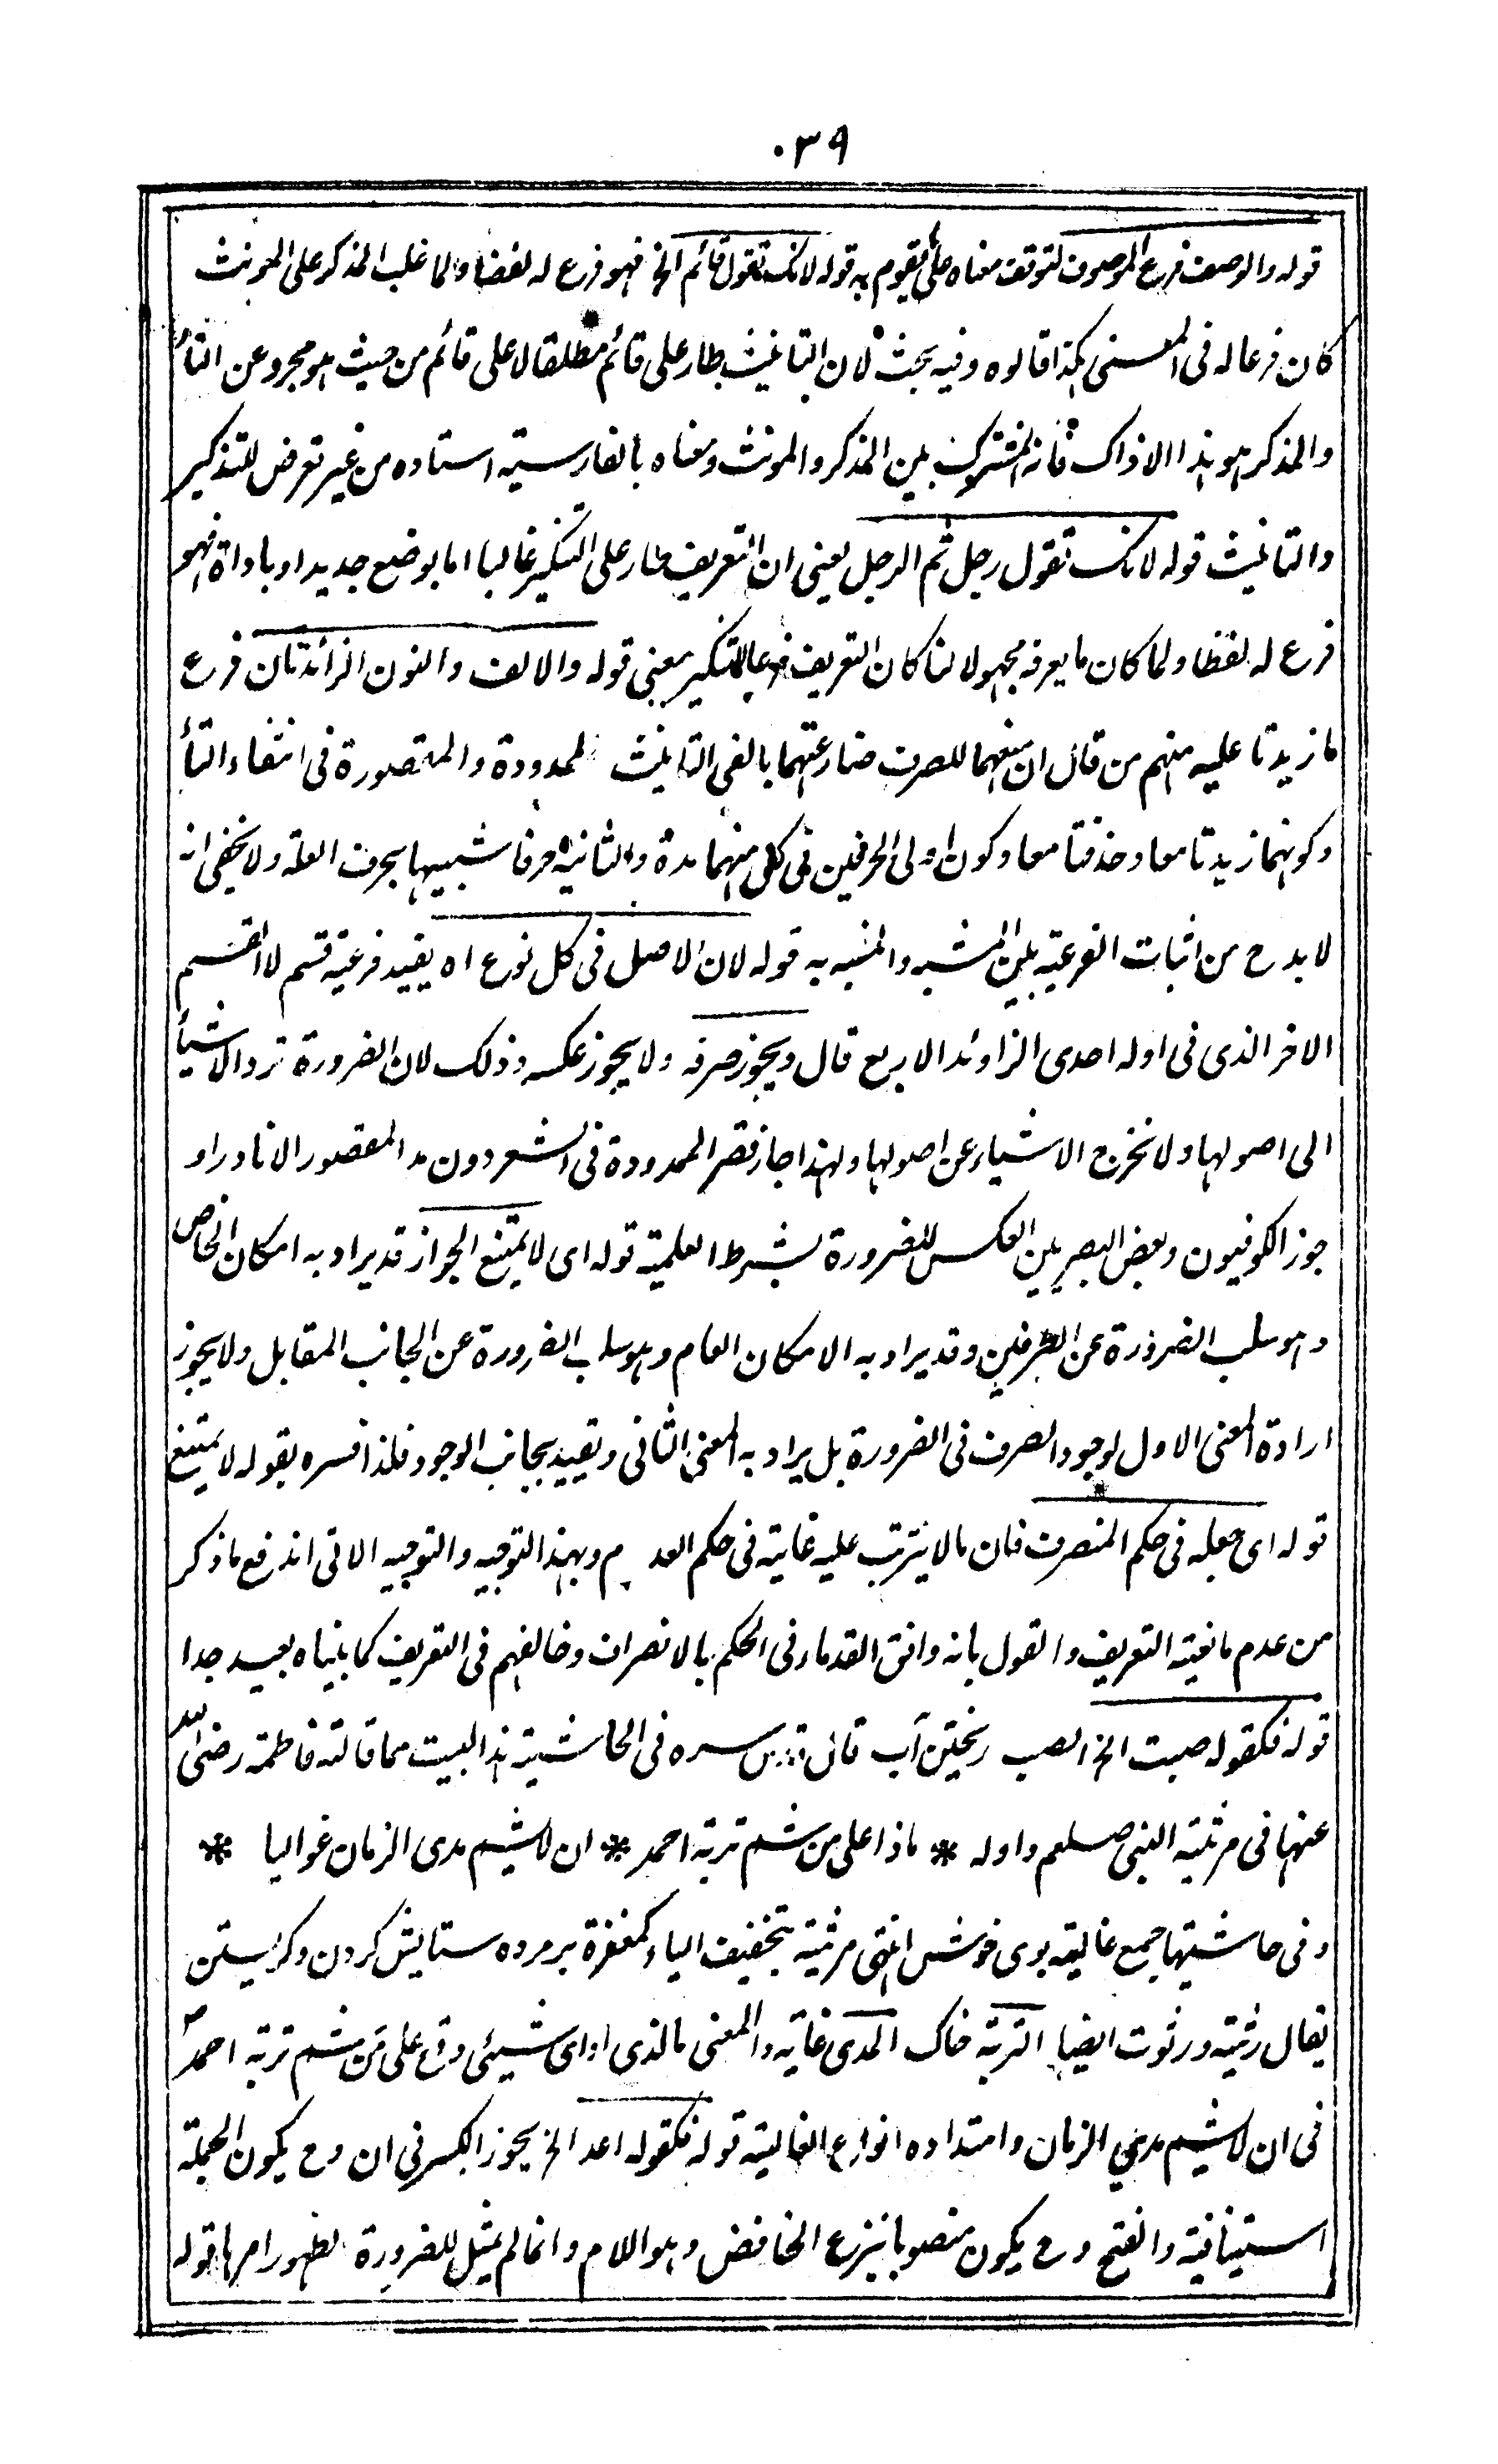 ٠٣٩
قوله والوصف فرع الموصوف لتوقف معناه على ما يقوم به قوله لانك تقول قائم الخ فهو فرع له لفظا ولما غلب المذكر على المونث
كان فرعا له فى المعنى هكذا قالوه وفيه بحث لان التانيث طار على قائم مطلقا لا على قائم من حيث هو مجرد عن التاء
والمذكر هو هذا لا ذاك فانه المشترك بين المذكر والمونث ومعناه بالفارسية استاده من غير تعرض للتذكير
والتانيث قوله لانك تقول رجل ثم الرجل يعنى ان التعريف طار على التنكير غالبا اما بوضع جديد او باداة فهو
فرع له لفظا ولما كان ما يعرفه مجهولا لنا كان التعريف فرعا للتنكير بمعنى قوله والالف والنون الزائدتان فرع
ما زيدتا عليه منهم من قال ان منعهما للصرف مضارعتهما بالفى التانيث لممدودة والمقصورة فى انتفاء التاء
وكونهما زيدتا معا وحذفتا معا وكون اولى الحرفين فى كل منهما مدة والثانية حرفا شبيها بحرف العلة ولا يخفى انه
لا بد ح من اثبات الفرعية بين المشبه والمشبه به قوله لان الاصل فى كل نوع اه يفيد فرعية قسم لا القسم
الاخر الذى فى اوله احدى الزاوئد الاربع قال ويجوز صرفه ولا يجوز عكسه وذلك لان الضرورة ترد الاشياء
الى اصولها ولا تخرج الاشياء عن اصولها ولهذا جاز قصر الممدودة فى الشعر دون مد المقصور الا نادرا و
جوز الكوفيون وبعض البصريين العكس للضرورة بشرط العلمية قوله اى لا يمتنع الجواز قد يراد به امكان الخاص
وهو سلب الضرورة عن الطرفين وقد يراد به الامكان العام وهو سلب الضرورة عن الجانب المقابل ولا يجوز
ارادة المعنى الاول لوجود الصرف فى الضرورة بل يراد به المعنى الثانى وتقييد بجانب الوجود فلذا فسره بقوله لا يمتنع
قوله اى جعله فى حكم المنصرف فان مالا يترتب عليه غايته فى حكم العدم وبهذا التوجيه والتوجيه الاتى اندفع ما ذكر
من عدم مانعية التعريف والقول بانه وافق القدماء فى الحكم بالانصراف وخالفهم فى التعريف كما بيناه بعيد جدا
قوله فكقوله صبت الخ الصب ريختن آب قال قدس سره فى الحاشية هذا البيت مما قالته فاطمة رضى الله
عنها فى مرثية النبى صلعم واوله * ماذا على من شم تربة احمد * ان لا يشم مدى الزمان غواليا *
وفى حاشيتها جمع غالية بوى خوش انتهى مرثية بتخفيف الياء كمغفرة بر مرده ستايش كردن وگريستن
يقال رثيته ورثوت ايضا التربة خاك المدى غاية والمعنى ما الذى او اى شيئى وقع على من شم تربة احمد ص
فى ان لا يشم مدى الزمان وامتداده انواع الغالية قوله فكقوله اعد الخ يجوز الكسر فى ان وح يكون الجملة
استينافية والفتح وح يكون منصوبا بنزع الخافض وهو اللام وانما لم يمثل للضرورة لظهور امرها قوله